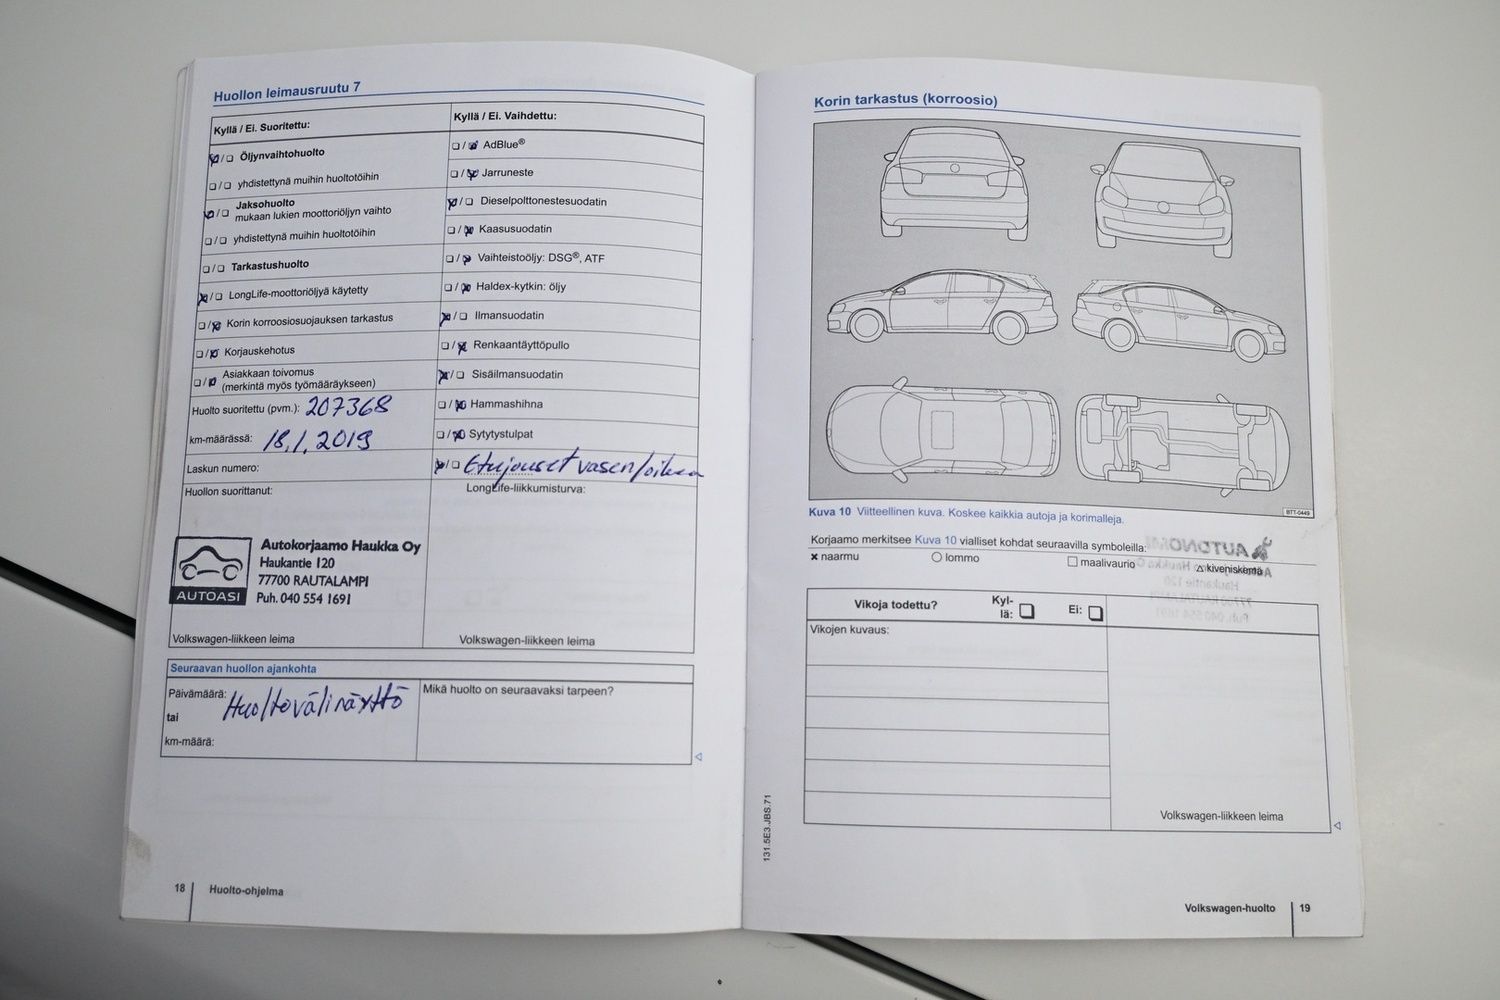 Huollon leimausruutu 7
Kyllä / Ei. Suoritettu:
Öljynvaihtohuolto
yhdistettynä muihin huoltotöihin
Jaksohuolto
mukaan lukien moottoriöljyn vaihto
yhdistettynä muihin huoltotöihin
Tarkastushuolto
LongLife-moottoriöljyä käytetty
Korin korroosiosuojauksen tarkastus
Korjauskehotus
Asiakkaan toivomus
(merkintä myös työmääräykseen)
Huolto suoritettu (pvm.): 207368
km-määrässä: 18.1.2019
Laskun numero:
Huollon suorittanut:
AUTOASI
Autokorjaamo Haukka Oy
Haukantie 120
77700 RAUTALAMPI
Puh. 040 554 1691
Volkswagen-liikkeen leima
Kyllä / Ei. Vaihdettu:
AdBlue®
Jarruneste
Dieselpolttonestesuodatin
Kaasusuodatin
Vaihteistoöljy: DSG®, ATF
Haldex-kytkin: öljy
Ilmansuodatin
Renkaantäyttöpullo
Sisäilmansuodatin
Hammashihna
Sytytystulpat
Etujouset vasen/oikea
LongLife-liikkumisturva:
Volkswagen-liikkeen leima
Seuraavan huollon ajankohta
Päivämäärä: Huoltovälinäyttö
tai
km-määrä:
Mikä huolto on seuraavaksi tarpeen?
18 Huolto-ohjelma
Korin tarkastus (korroosio)
BTT-0449
Kuva 10 Viitteellinen kuva. Koskee kaikkia autoja ja korimalleja.
Korjaamo merkitsee Kuva 10 vialliset kohdat seuraavilla symboleilla:
naarmu lommo maalivaurio kiveniskemä
Vikoja todettu? Kyl-
lä: Ei:
Vikojen kuvaus:
Volkswagen-liikkeen leima
131.5E3.JBS.71
Volkswagen-huolto 19